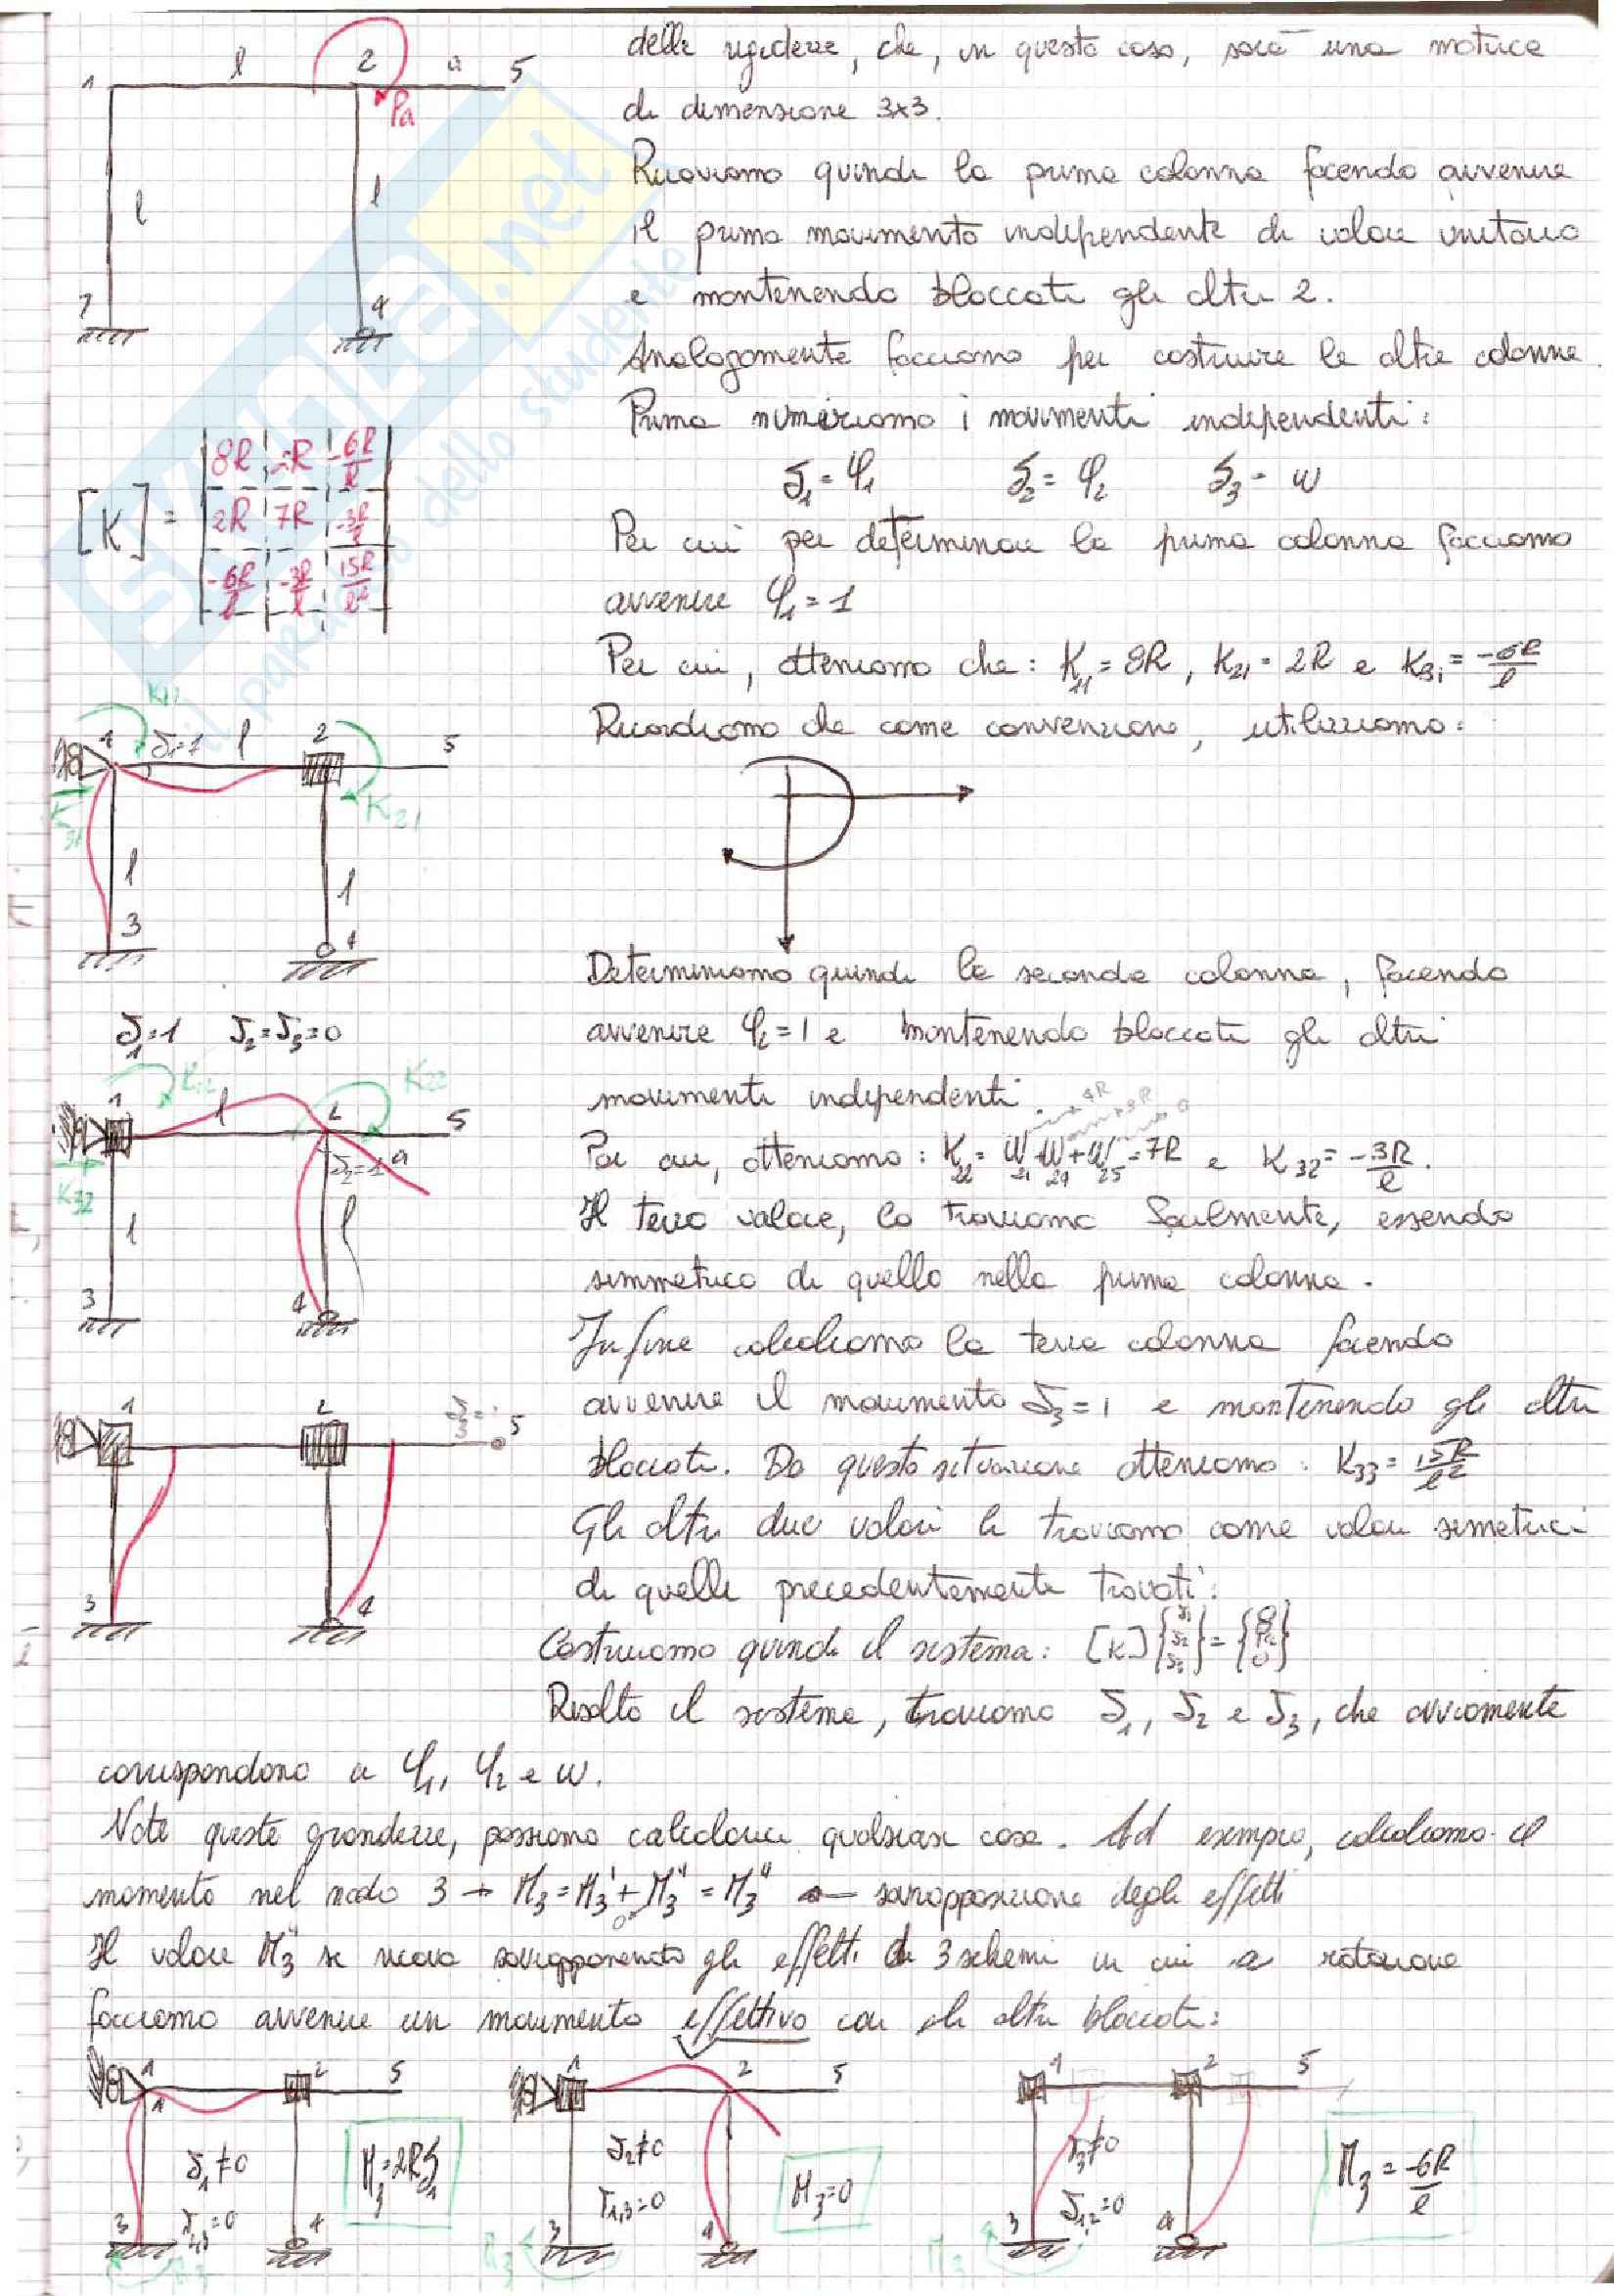 delle rigidezze, che, in questo caso, sarà una matrice
di dimensione 3x3.
Ricaviamo quindi la prima colonna facendo avvenire
il primo movimento indipendente di valore unitario
e mantenendo bloccati gli altri 2.
Analogamente facciamo per costruire le altre colonne.
Prima numeriamo i movimenti indipendenti:
δ₁ = φ₁ δ₂ = φ₂ δ₃ = w
Per cui per determinare la prima colonna facciamo
avvenire φ₁ = 1
Per cui, otteniamo che: K₁₁ = 8R, K₂₁ = 2R e K₃₁ = -6R/l
Ricordiamo che come convenzione, utilizziamo:
Determiniamo quindi la seconda colonna, facendo
avvenire φ₂ = 1 e mantenendo bloccati gli altri
movimenti indipendenti.
Per cui, otteniamo: K₂₂ = W₂₁ + W₂₄ + W₂₅ = 7R e K₃₂ = -3R/l.
Il terzo valore, lo troviamo facilmente, essendo
simmetrico di quello nella prima colonna.
Infine calcoliamo la terza colonna facendo
avvenire il movimento δ₃ = 1 e mantenendo gli altri
bloccati. Da questa situazione otteniamo: K₃₃ = 15R/l²
Gli altri due valori li troviamo come valori simetrici
di quelli precedentemente trovati.
Costruiamo quindi il sistema: [K]{δ₁ δ₂ δ₃} = {0 Pa 0}
Risolto il sistema, troviamo δ₁, δ₂ e δ₃, che ovviamente
corrispondono a φ₁, φ₂ e w.
Note queste grandezze, possiamo calcolare qualsiasi cosa. Ad esempio, calcoliamo il
momento nel nodo 3 → M₃ = M₃' + M₃'' = M₃'' ← sovrapposizione degli effetti
0
Il valore M₃'' si ricava sovrapponendo gli effetti di 3 schemi in cui a rotazione
facciamo avvenire un movimento effettivo con gli altri bloccati:
1 l 2 a 5
Pa
l l
4
[K] =
8R 2R -6R/l
2R 7R -3R/l
-6R/l -3R/l 15R/l²
K₁₁
1 δ₁=1 l 2 5
K₃₁ K₂₁
l l
3 4
δ₁=1 δ₂=δ₃=0
K₁₂ K₂₂
1 l 2 5
K₃₂ δ₂=1 a
l l
3 4
1 2 5
3 4
1 2 5
δ₁≠0 M₃=2Rδ₁
δ₂,₃=0
3 4
1 2 5
δ₂≠0
δ₁,₃=0 M₃=0
3 4
1 2 5
δ₃≠0 M₃ = -6R/l
δ₁,₂=0
3 4
SKUOLA.net
il paradiso dello studente